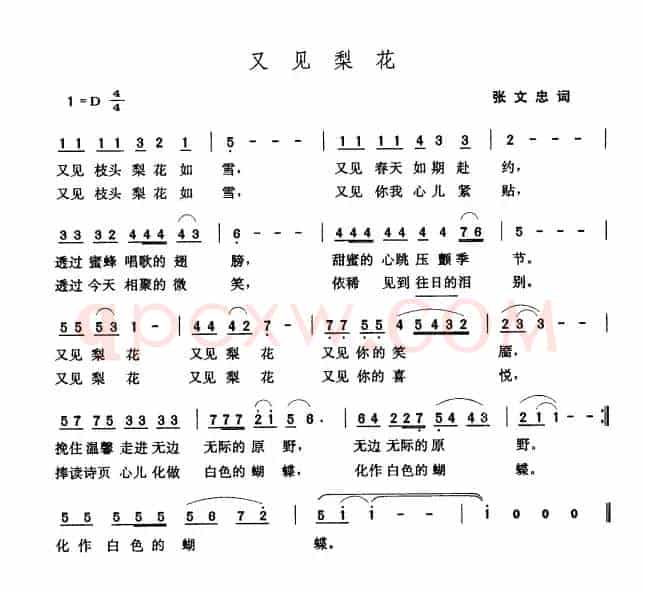 又见梨花
1=D 4/4 张文忠词
11 11 32 1 | 5 - - - | 11 11 43 3 | 2 - - - |
又见 枝头 梨花 如 雪, 又见 春天 如期 赴 约,
又见 枝头 梨花 如 雪, 又见 你我 心儿 紧 贴,
33 32 444 43 | 6 - - - | 444 44 4 76 | 5 - - - |
透过 蜜蜂 唱歌的 翅 膀, 甜蜜的 心跳 压 颤季 节。
透过 今天 相聚的 微 笑, 依稀 见到 往日的泪 别。
55 53 1 - | 44 42 7 - | 77 55 4 5432 | 23 3 - - |
又见 梨 花 又见 梨 花 又见 你的 笑 靥,
又见 梨 花 又见 梨 花 又见 你的 喜 悦,
57 75 533 53 | 777 2i 56 . | 64 227 54 43 | i - - - :||
挽住 温馨 走进 无边 无际的 原 野, 无边 无际的 原 野。
捧读诗页 心儿 化做 白色的 蝴 蝶, 化作 白色的 蝴 蝶。
5 5 555 5 | 5 6 7 2 | 5 i i - - | i 0 0 0 ||
化 作 白 色 的 蝴 蝶。
qpcxw.COM